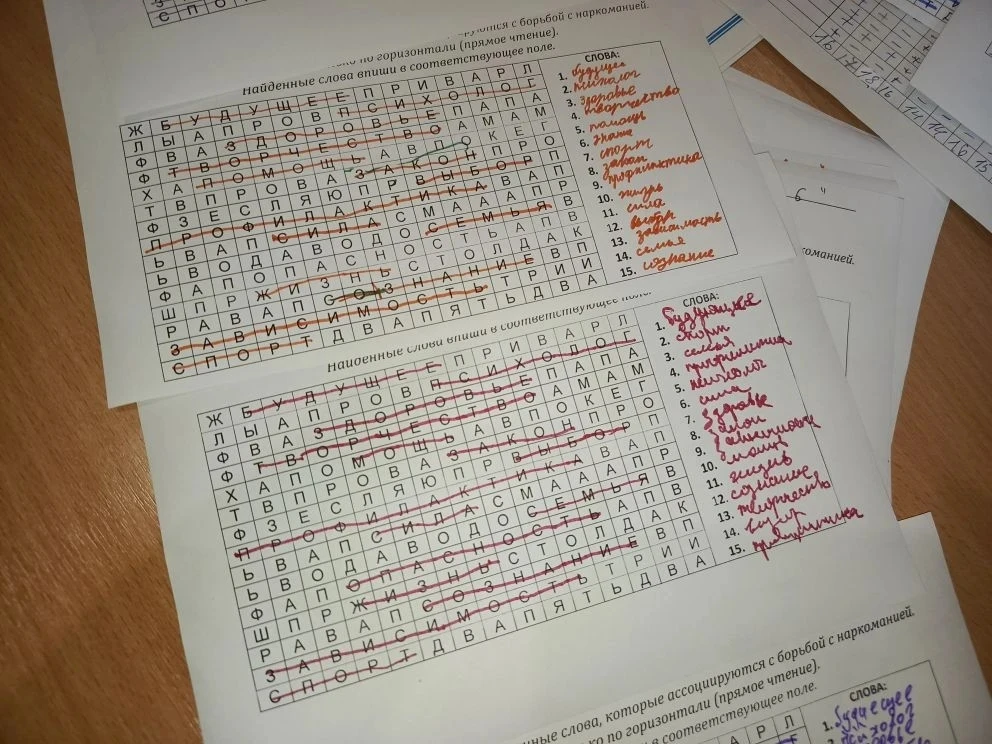 С П О
ируются с борьбой с наркоманией.
ко по горизонтали (прямое чтение).
Найденные слова впиши в соответствующее поле.
Ж Б У Д У Щ Е Е П Р И В А Р Л
Л Ы А П Р О В П С И Х О Л О Г
Ф В А З Д О Р О В Ь Е П А П А
Ф Т В О Р Ч Е С Т В О А М А М
Х А П О М О Щ Ь А В П О К Е Г
Т В П Р О В А З А К О Н П Р О
Ф З Е С Л Я Ю П Р В Ы Б О Р П
П Р О Ф И Л А К Т И К А В А П
Ь В А П С И Л А С М А А А П Р
Ь В О Д А В О Д О С Е М Ь Я В
Ф А П О П А С Н О С Т Ь А П В
Ш П Р Ж И З Н Ь С Т О Л Д А К
Р А В А П С О З Н А Н И Е В П
З А В И С И М О С Т Ь Т Р И И
С П О Р Т Д В А П Я Т Ь Д В А
СЛОВА:
1. будущее
2. психолог
3. здоровье
4. творчество
5. помощь
6.
7. спорт
8. закон
9. профилактика
10. жизнь
11. сила
12. выбор
13. зависимость
14. семья
15.
найденные слова впиши в соответствующее поле.
Ж Б У Д У Щ Е Е П Р И В А Р Л
Л Ы А П Р О В П С И Х О Л О Г
Ф В А З Д О Р О В Ь Е П А П А
Ф Т В О Р Ч Е С Т В О А М А М
Х А П О М О Щ Ь А В П О К Е Г
Т В П Р О В А З А К О Н П Р О
Ф З Е С Л Я Ю П Р В Ы Б О Р П
П Р О Ф И Л А К Т И К А В А П
Ь В А П С И Л А С М А А А П Р
Ь В О Д А В О Д О С Е М Ь Я В
Ф А П О П А С Н О С Т Ь А П В
Ш П Р Ж И З Н Ь С Т О Л Д А К
Р А В А П С О З Н А Н И Е В П
З А В И С И М О С Т Ь Т Р И И
С П О Р Т Д В А П Я Т Ь Д В А
СЛОВА:
1.
2. спорт
3. семья
4. профилактика
5. психолог
6. сила
7. здоровье
8. закон
9.
10.
11. жизнь
12. сознание
13. творчество
14.
15.
команией.
нные слова, которые ассоциируются с борьбой с наркоманией.
ко по горизонтали (прямое чтение).
и в соответствующее поле.
А Р Л
СЛОВА:
1. будущее
2. психолог